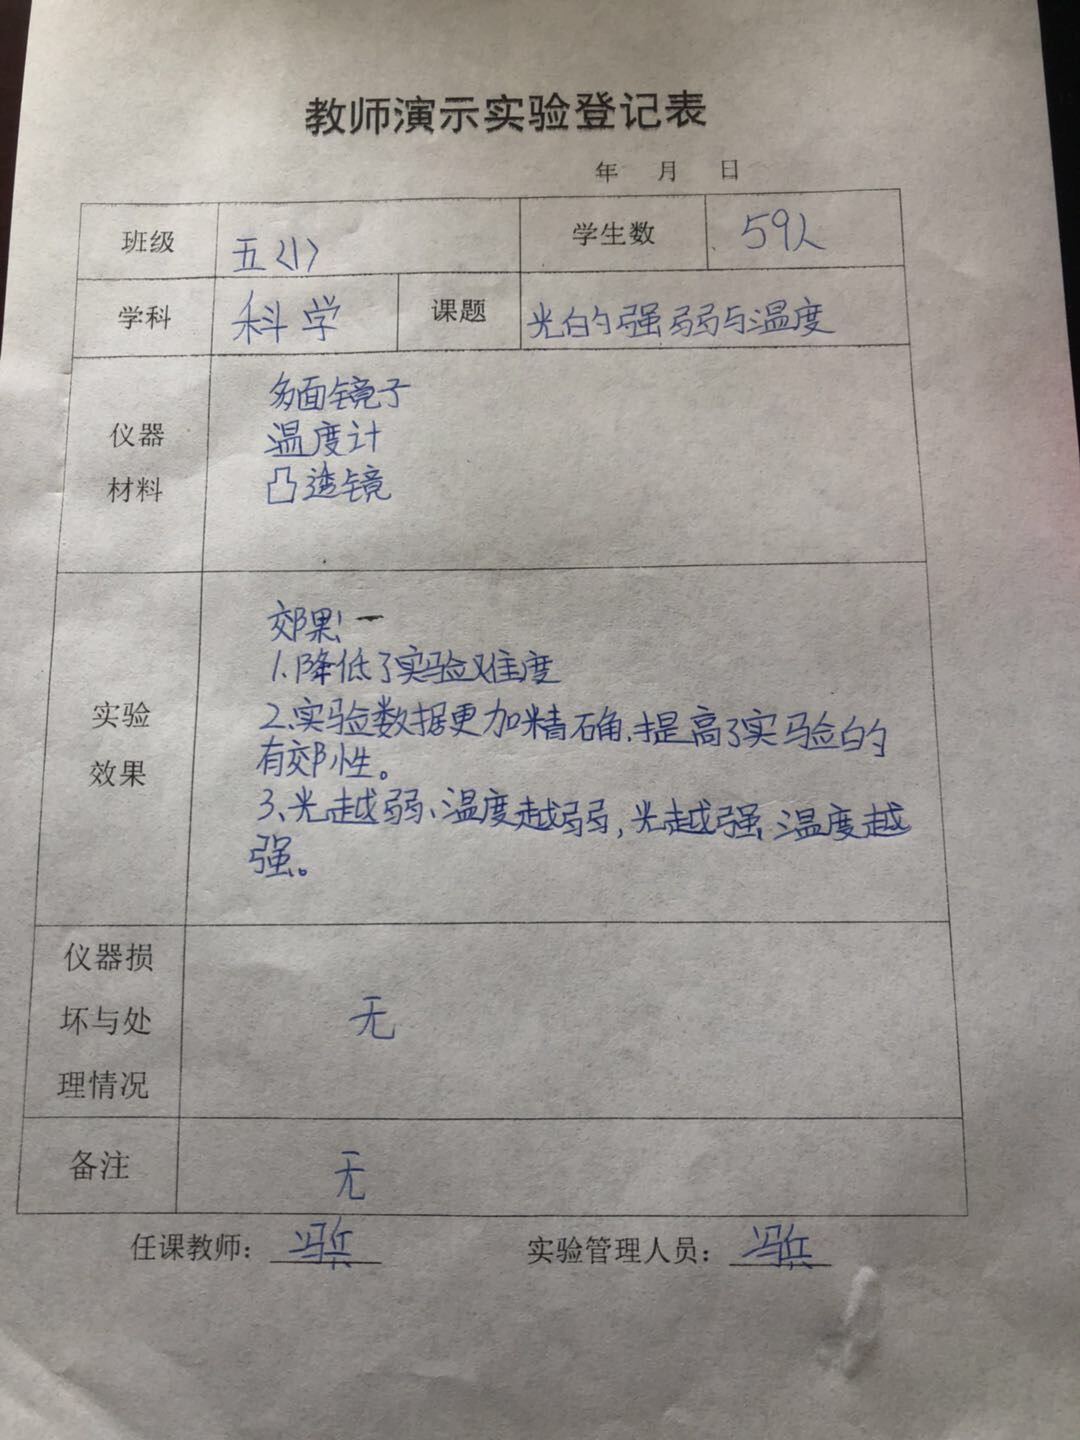 教师演示实验登记表
年 月 日
班级 五〈1〉 学生数 59人
学科 科学 课题 光的强弱与温度
仪器材料
多面镜子
温度计
凸透镜
实验效果
效果:
1.降低了实验难度
2、实验数据更加精确、提高了实验的
有效性。
3、光越弱、温度越弱,光越强、温度越
强。
仪器损
坏与处
理情况
无
备注 无
任课教师:冯兵 实验管理人员:冯兵